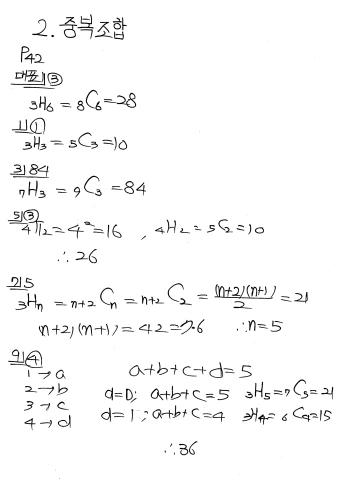 2. 중복조합
P42
대표1) ③
₃H₆ = ₈C₆ = 28
1) ①
₃H₃ = ₅C₃ = 10
3) 84
₇H₃ = ₉C₃ = 84
5) ③
₄Π₂ = 4² = 16 , ₄H₂ = ₅C₂ = 10
∴ 26
7) 5
₃Hₙ = ₙ₊₂Cₙ = ₙ₊₂C₂ = (n+2)(n+1)/2 = 21
(n+2)(n+1) = 42 = 7·6 ∴ n = 5
9) ④
1 → a a+b+c+d = 5
2 → b d=0; a+b+c = 5 ₃H₅ = ₇C₅ = 21
3 → c d=1; a+b+c = 4 ₃H₄ = ₆C₄ = 15
4 → d
∴ 36